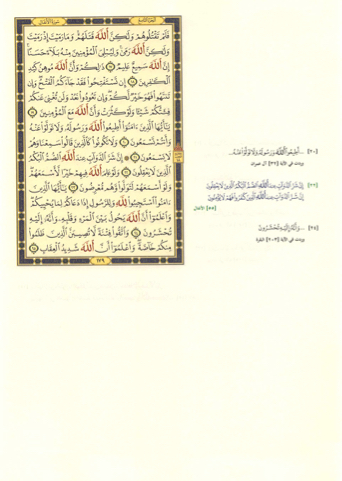 الجزء التاسع
سورة الأنفال
فَلَمْ تَقْتُلُوهُمْ وَلَٰكِنَّ ٱللَّهَ قَتَلَهُمْ وَمَا رَمَيْتَ إِذْ رَمَيْتَ
وَلَٰكِنَّ ٱللَّهَ رَمَىٰ وَلِيُبْلِيَ ٱلْمُؤْمِنِينَ مِنْهُ بَلَآءً حَسَنًا
إِنَّ ٱللَّهَ سَمِيعٌ عَلِيمٌ ﴿١٧﴾ ذَٰلِكُمْ وَأَنَّ ٱللَّهَ مُوهِنُ كَيْدِ
ٱلْكَٰفِرِينَ ﴿١٨﴾ إِن تَسْتَفْتِحُوا۟ فَقَدْ جَآءَكُمُ ٱلْفَتْحُ وَإِن
تَنتَهُوا۟ فَهُوَ خَيْرٌ لَّكُمْ وَإِن تَعُودُوا۟ نَعُدْ وَلَن تُغْنِىَ عَنكُمْ
فِئَتُكُمْ شَيْـًٔا وَلَوْ كَثُرَتْ وَأَنَّ ٱللَّهَ مَعَ ٱلْمُؤْمِنِينَ ﴿١٩﴾
يَٰٓأَيُّهَا ٱلَّذِينَ ءَامَنُوٓا۟ أَطِيعُوا۟ ٱللَّهَ وَرَسُولَهُۥ وَلَا تَوَلَّوْا۟ عَنْهُ
وَأَنتُمْ تَسْمَعُونَ ﴿٢٠﴾ وَلَا تَكُونُوا۟ كَٱلَّذِينَ قَالُوا۟ سَمِعْنَا وَهُمْ
لَا يَسْمَعُونَ ﴿٢١﴾ إِنَّ شَرَّ ٱلدَّوَآبِّ عِندَ ٱللَّهِ ٱلصُّمُّ ٱلْبُكْمُ
ٱلَّذِينَ لَا يَعْقِلُونَ ﴿٢٢﴾ وَلَوْ عَلِمَ ٱللَّهُ فِيهِمْ خَيْرًا لَّأَسْمَعَهُمْ
وَلَوْ أَسْمَعَهُمْ لَتَوَلَّوا۟ وَّهُم مُّعْرِضُونَ ﴿٢٣﴾ يَٰٓأَيُّهَا ٱلَّذِينَ
ءَامَنُوا۟ ٱسْتَجِيبُوا۟ لِلَّهِ وَلِلرَّسُولِ إِذَا دَعَاكُمْ لِمَا يُحْيِيكُمْ
وَٱعْلَمُوٓا۟ أَنَّ ٱللَّهَ يَحُولُ بَيْنَ ٱلْمَرْءِ وَقَلْبِهِۦ وَأَنَّهُۥٓ إِلَيْهِ
تُحْشَرُونَ ﴿٢٤﴾ وَٱتَّقُوا۟ فِتْنَةً لَّا تُصِيبَنَّ ٱلَّذِينَ ظَلَمُوا۟
مِنكُمْ خَآصَّةً وَٱعْلَمُوٓا۟ أَنَّ ٱللَّهَ شَدِيدُ ٱلْعِقَابِ ﴿٢٥﴾
١٧٩
[٢٠] ... أَطِيعُوا۟ ٱللَّهَ وَرَسُولَهُۥ وَلَا تَوَلَّوْا۟ عَنْهُ...
وردت في الآية [٣٢] آل عمران
[٢٢] إِنَّ شَرَّ ٱلدَّوَآبِّ عِندَ ٱللَّهِ ٱلصُّمُّ ٱلْبُكْمُ ٱلَّذِينَ لَا يَعْقِلُونَ
إِنَّ شَرَّ ٱلدَّوَآبِّ عِندَ ٱللَّهِ ٱلَّذِينَ كَفَرُوا۟ فَهُمْ لَا يُؤْمِنُونَ
[٥٥] الأنفال
[٢٤] ... وَأَنَّهُۥٓ إِلَيْهِ تُحْشَرُونَ
وردت في الآية [٢٠٣] البقرة